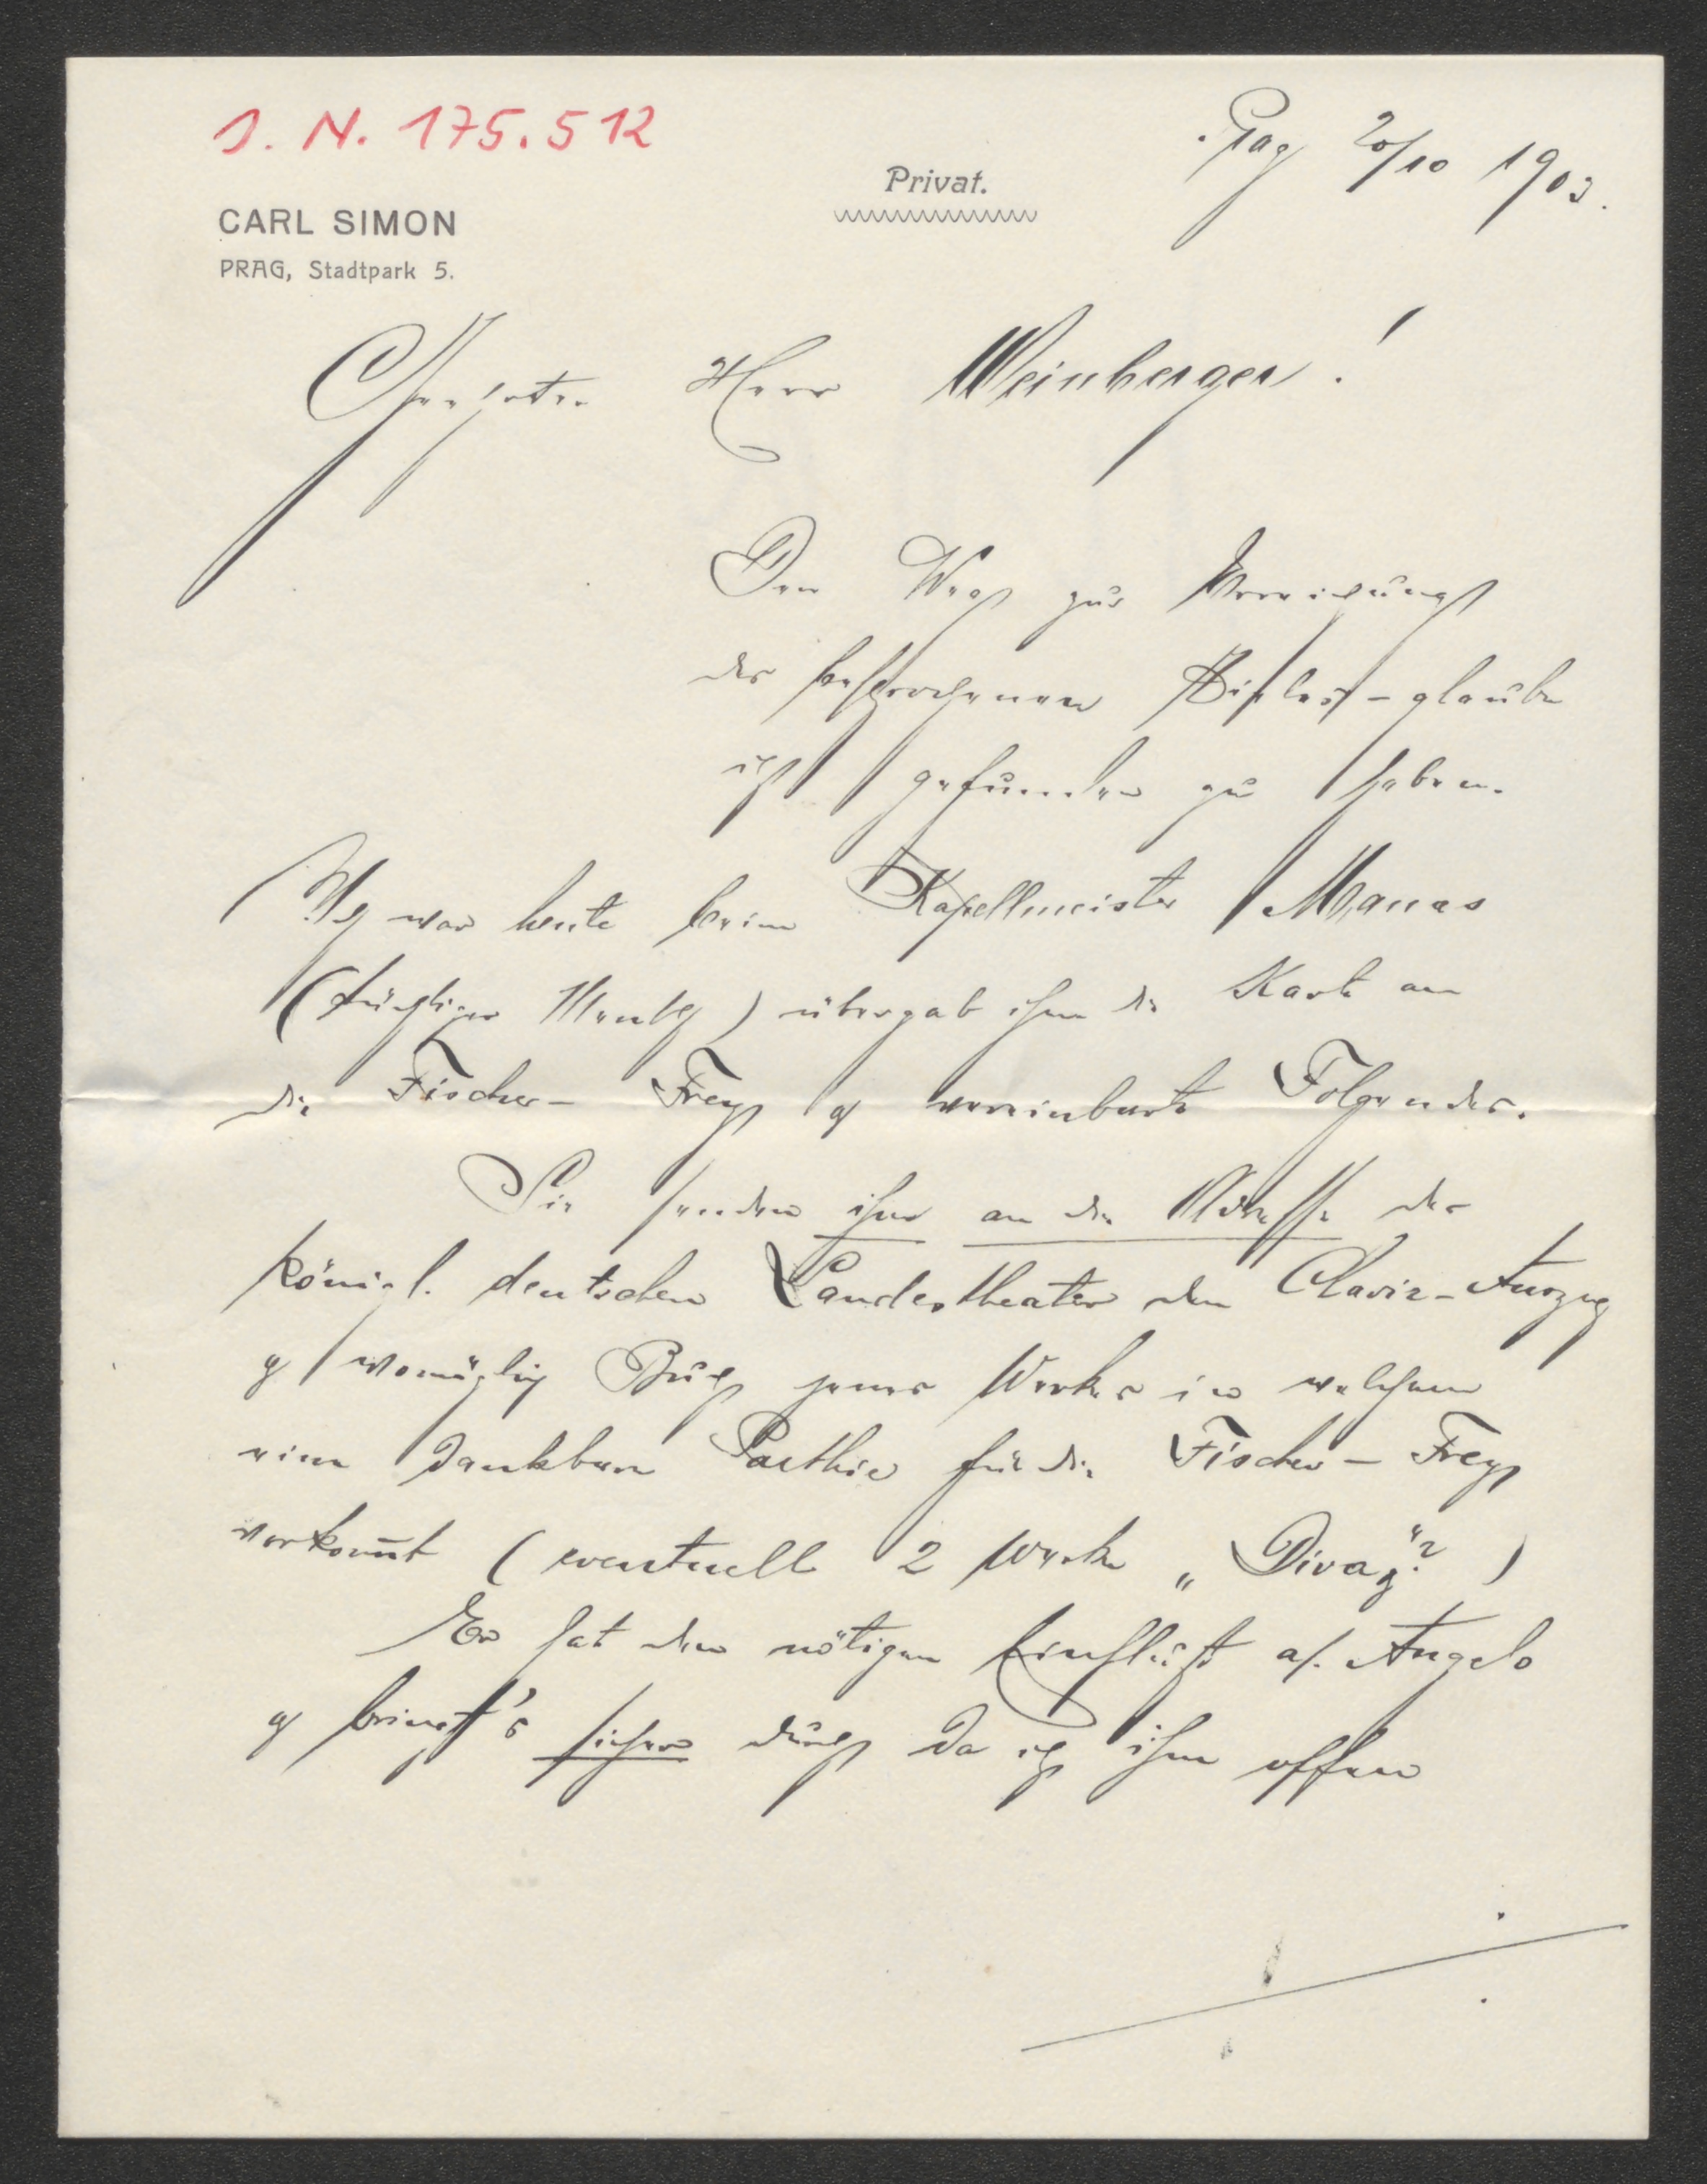 J. N. 175.512
Prag 20/10 1903.
Privat.
CARL SIMON
PRAG, Stadtpark 5.
Geehrter Herr Weinberger!
Den Weg zur
der besprochenen glaube
ich gefunden zu haben.
Ich war heute beim Kapellmeister Manas
(tüchtiger Mensch) übergab ihm die Karte an
die Fischer-Frey & vereinbarte Folgendes.
Sie senden ihm an die Adresse des
königl. deutschen Landestheater den Clavier-Auszug
& womöglich Buch jenes Werkes in welchem
eine dankbare Parthie für die Fischer-Frey
vorkom̄t (eventuell 2 Werke „Diva"?)
Er hat den nötigen Einfluß a/. Angelo
& bringt's sicher durch da ich ihm offen